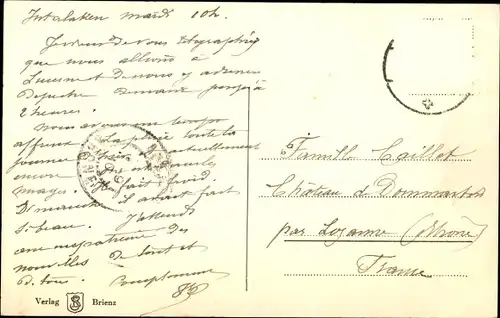 Interlaken mardi 10h.
Je viens de vous télégraphier
que nous allions à
Lucerne et de nous y adresser
Depêche demain jusqu'à
2 heures.
Nous avons un temps
affreux la pluie toute la
journée
encore nuages
fait froid.
Dimanche il avait fait
si beau. J'attends
avec impatience des
nouvelles de tout et
de tous.
Verlag Brienz
Famille Caillet
Château de Dommartin
par Lozanne (Rhône)
France